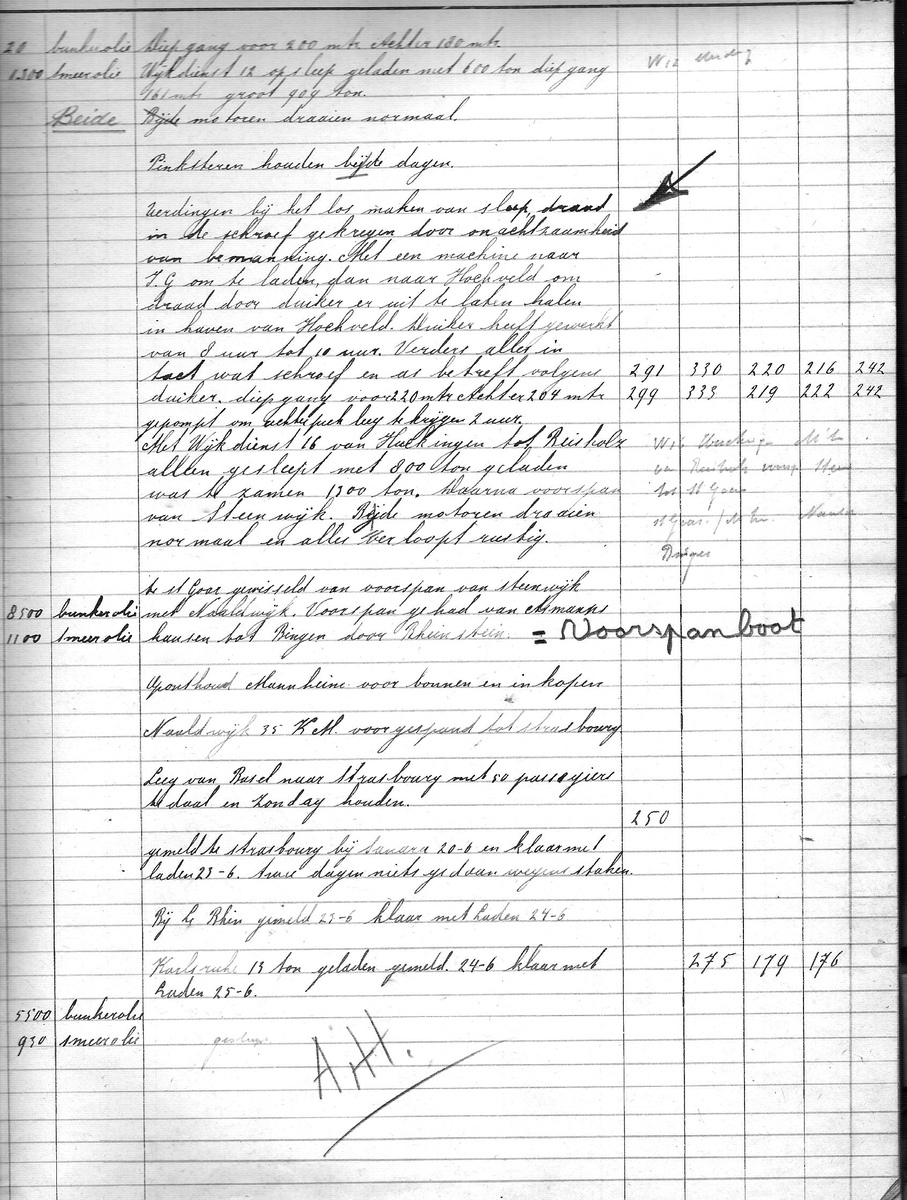 20 bunkerolie Diepgang voor 200 mtr Achter 180 mtr
1300 smeerolie Wijkdienst 12 op sleep geladen met 600 ton diepgang
161 mtr groot 909 ton.
Beide Bijde motoren draaien normaal.
Pinksteren houden bijde dagen.
Uerdingen bij het los maken van sleep draad
in de schroef gekregen door onachtzaamheid
van bemanning. Met een machine naar
I.G om te laden, dan naar Hochveld om
draad door duiker er uit te laten halen
in haven van Hochveld. Duiker heeft gewerkt
van 8 uur tot 10 uur. Verders alles in
tact wat schroef en as betreft volgens 291 330 220 216 242
duiker. diepgang voor 220 mtr Achter 204 mtr 299 333 219 222 242
gepompt om achterpiek leeg te krijgen 2 uur.
Met Wijkdienst 16 van Huckingen tot Reisholz
alleen gesleept met 800 ton geladen
was te zamen 1300 ton. waarna voorspan
van Steenwijk. Bijde motoren draaien tot St Goar
normaal en alles verloopt rustig.
Bingen
te st Goar gewisseld van voorspan van steenwijk
8500 bunkerolie met Naaldwijk. Voorspan gehad van Asmanns
1100 smeerolie hausen tot Bingen door Rheinstein. = Voorspanboot
Oponthoud Mannheim voor bonnen en inkopen
Naaldwijk 35 KM. voorgespand tot strasbourg
Leeg van Basel naar strasbourg met 50 passagiers
te daal en Zondag houden.
250
gemeld te strasbourg bij 20-6 en klaar met
laden 23-6. twee dagen niets gedaan wegens staken.
Bij Le Rhin gemeld 23-6 klaar met Laden 24-6
Karlsruhe 13 ton geladen gemeld 24-6 klaar met 275 179 176
Laden 25-6.
5500 bunkerolie
930 smeerolie
A.H.